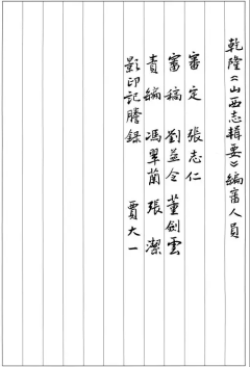 乾隆《山西志輯要》編審人員
審定 張志仁
審稿 劉益令 董劍雲
責編 馮翠蘭 張潔
影印記謄錄 賈大一